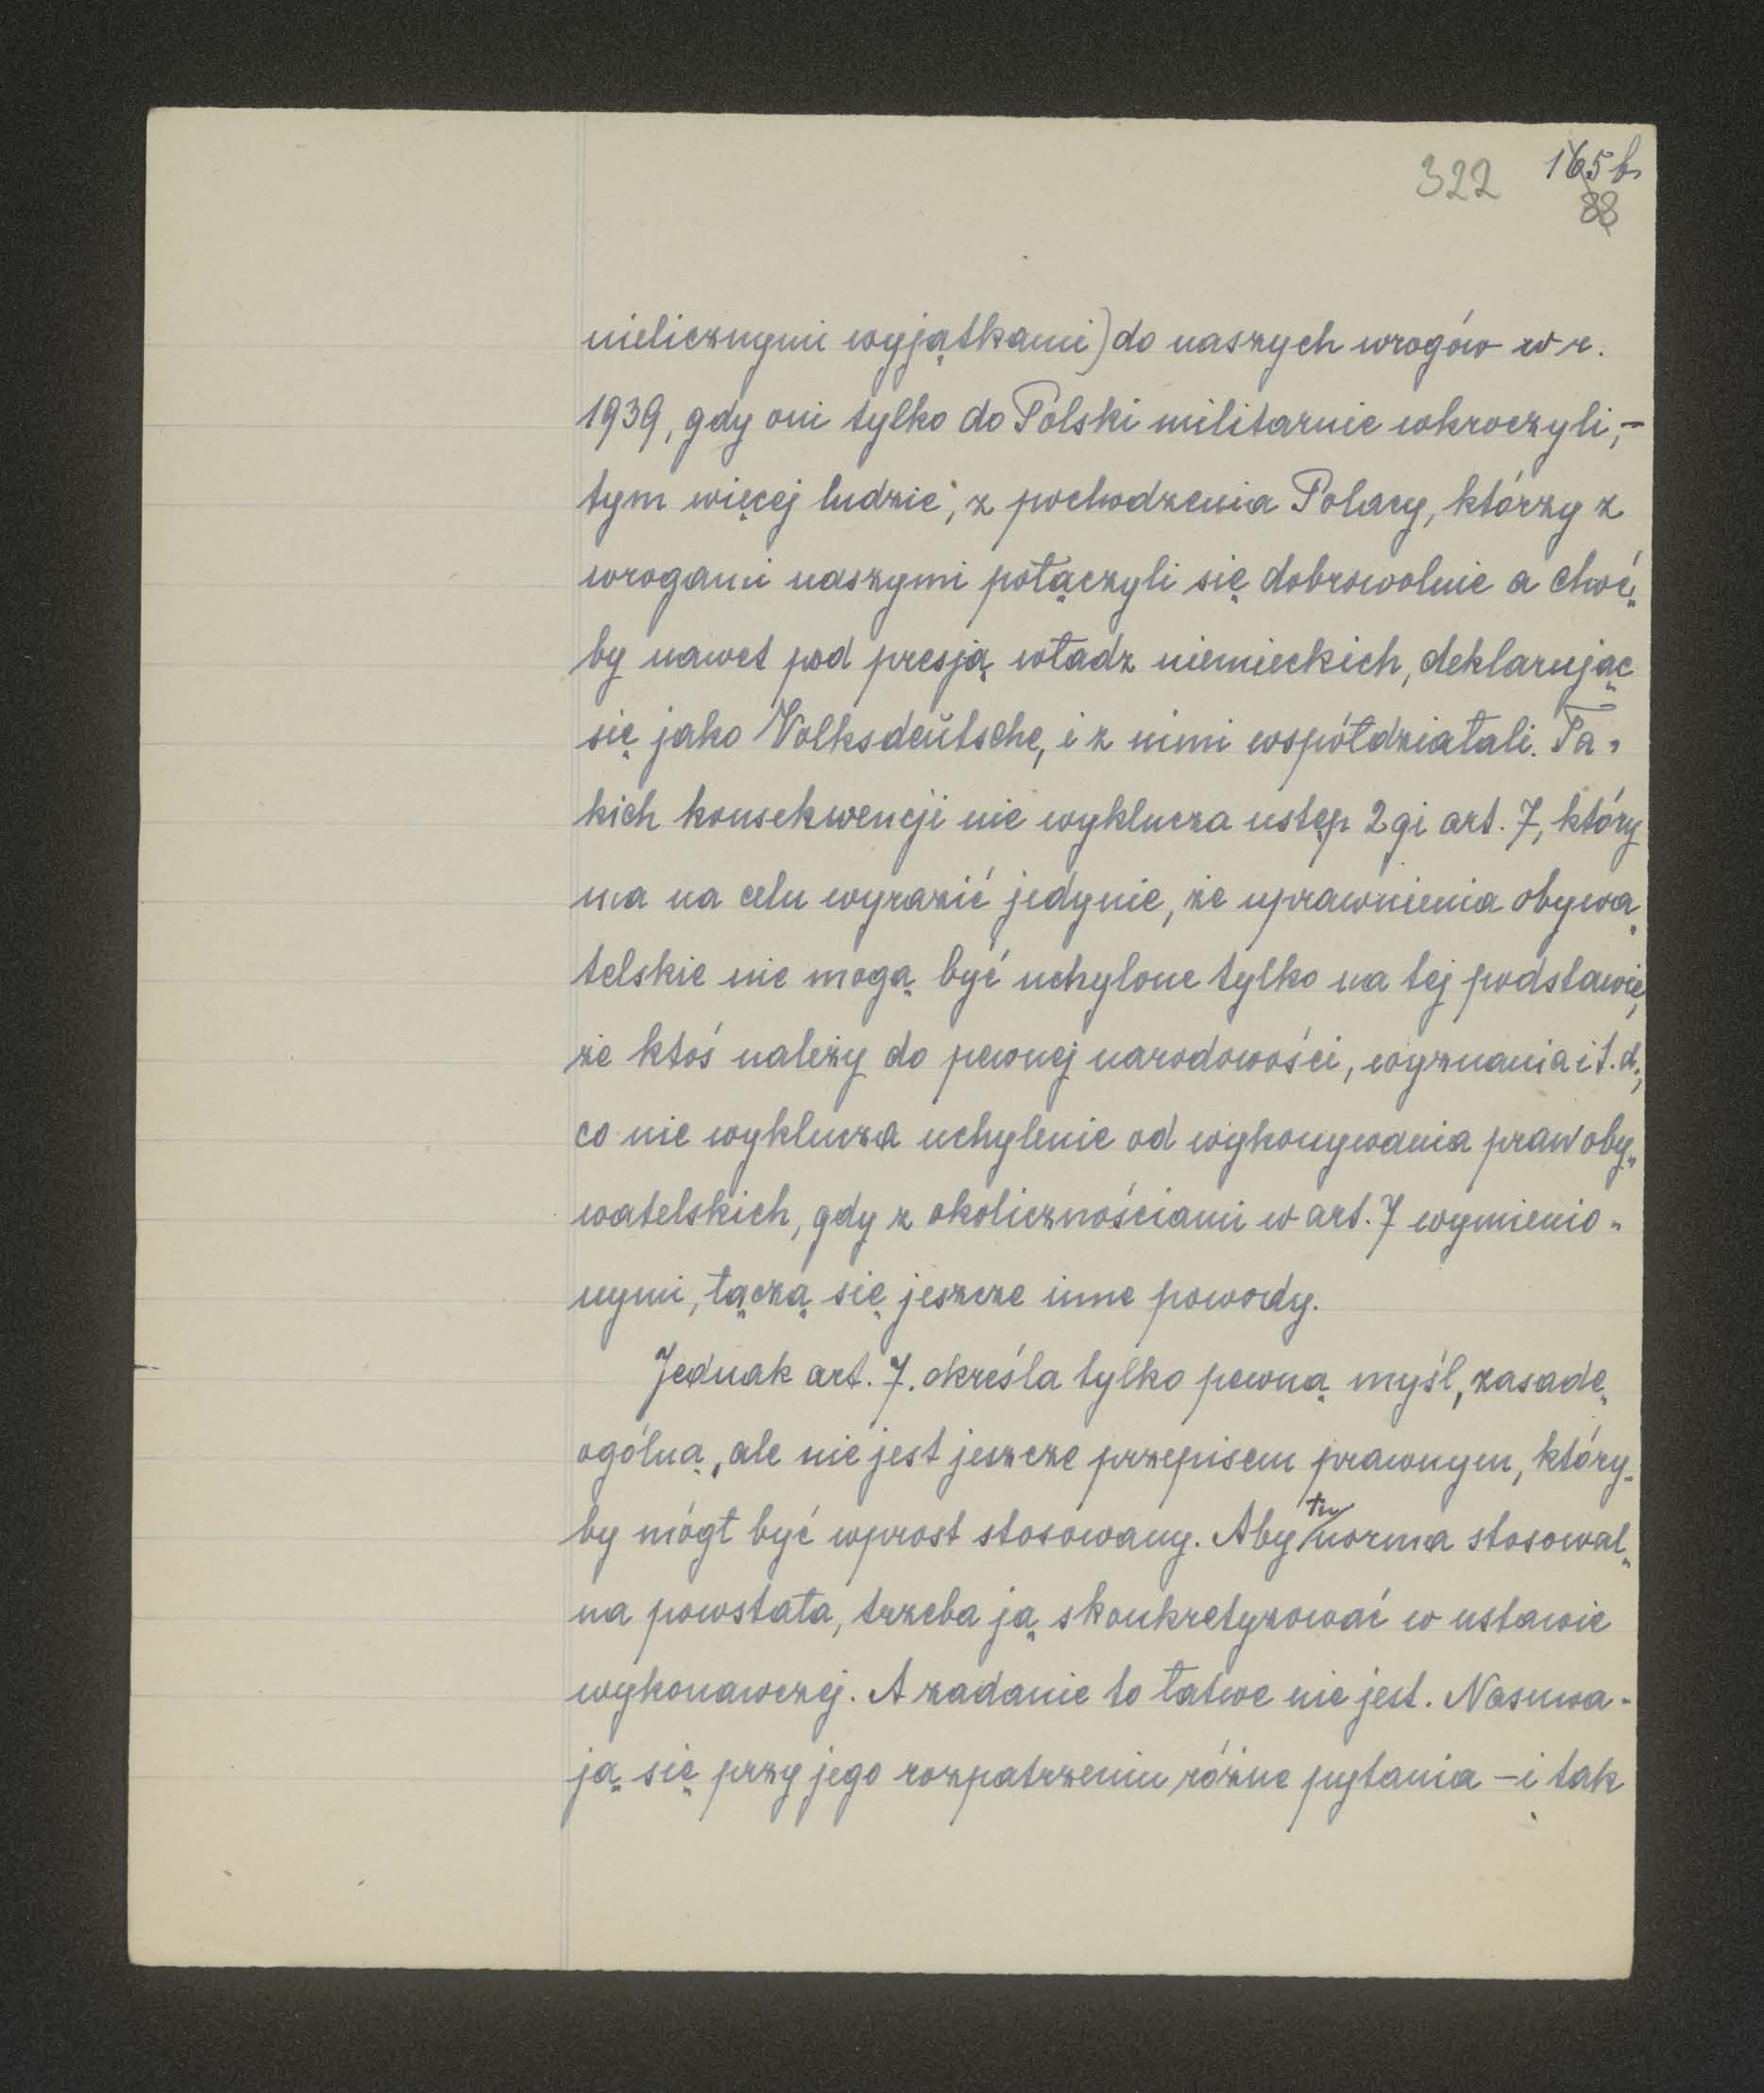 322 165 b
88
nielicznymi wyjątkami) do naszych wrogów w r.
1939, gdy oni tylko do Polski militarnie wkroczyli, –
tym więcej ludzie, z pochodzenia Polacy, którzy z
wrogami naszymi połączyli się dobrowolnie a choć„
by nawet pod presją władz niemieckich, deklarując
się jako Volksdeutsche, i z nimi współdziałali. Ta„
kich konsekwencji nie wyklucza ustęp 2gi art. 7, który
ma na celu wyrazić jedynie, że uprawnienia obywa„
telskie nie mogą być uchylone tylko na tej podstawie,
że ktoś należy do pewnej narodowości, wyznania i t. d.,
co nie wyklucza uchylenie od wykonywania praw oby„
watelskich, gdy z okolicznościami w art. 7 wymienio„
nymi, łączą się jeszcze inne powody.
Jednak art. 7. określa tylko pewną myśl, zasadę
ogólną, ale nie jest jeszcze przepisem prawnym, który-
by mógł być wprost stosowany. Aby tu norma stosowal„
na powstała, trzeba ją skonkretyzować w ustawie
wykonawczej. A zadanie to łatwe nie jest. Nasuwa-
ją się przy jego rozpatrzeniu różne pytania – i tak